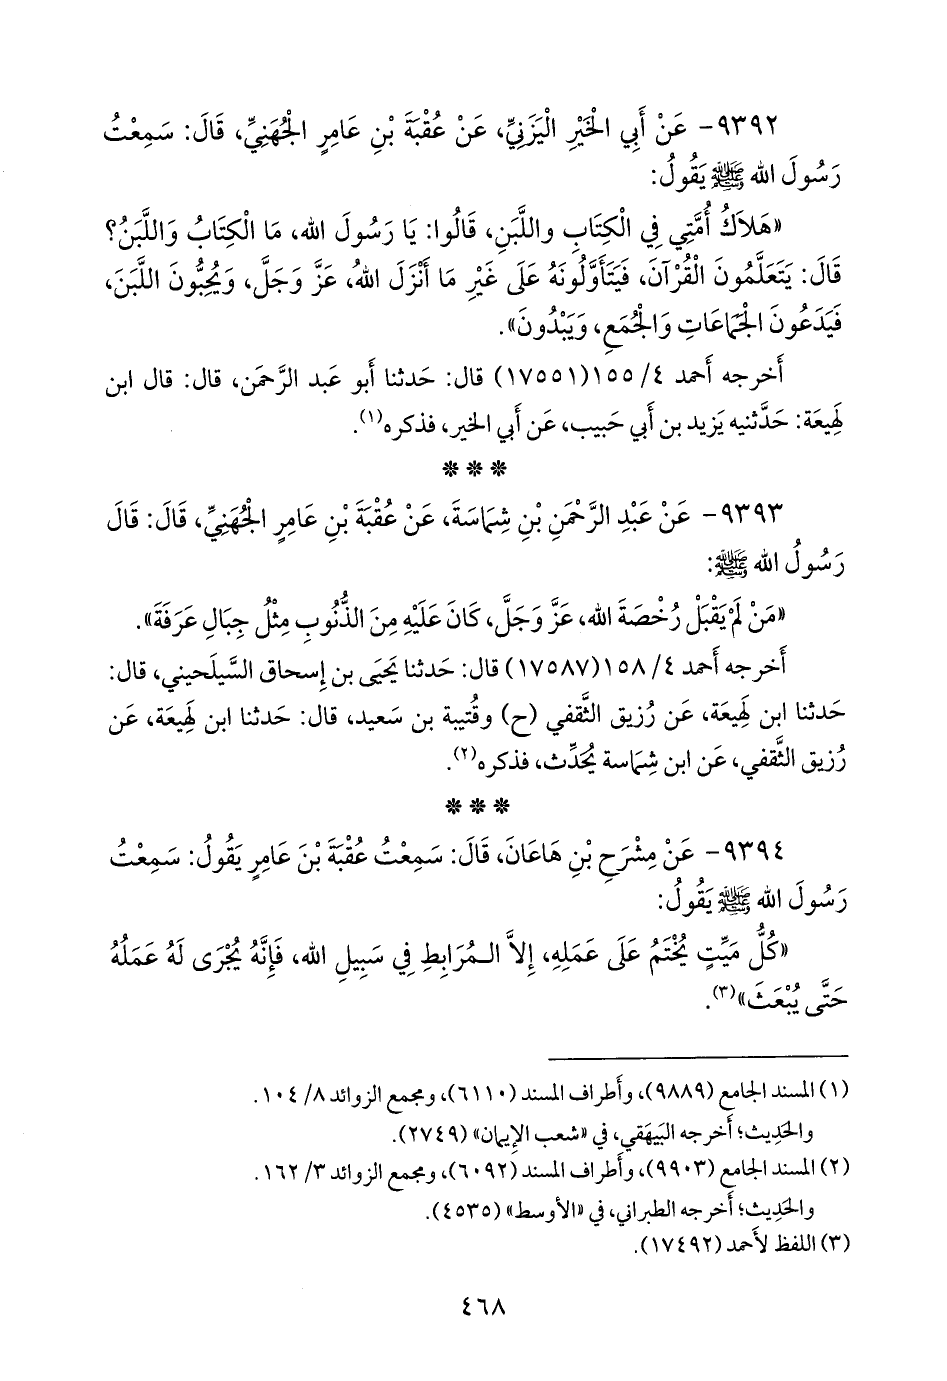 ٩٣٩٢- عَنْ أَبِي الْخَيْرِ الْيَزَنِيِّ، عَنْ عُقْبَةَ بْنِ عَامِرٍ الْجُهَنِيِّ، قَالَ: سَمِعْتُ
رَسُولَ الله ﷺ يَقُولُ:
«هَلَاكُ أُمَّتِي فِي الْكِتَابِ واللَّبَنِ، قَالُوا: يَا رَسُولَ الله، مَا الْكِتَابُ وَاللَّبَنُ؟
قَالَ: يَتَعَلَّمُونَ الْقُرْآنَ، فَيَتَأَوَّلُونَهُ عَلَى غَيْرِ مَا أَنْزَلَ اللهُ، عَزَّ وَجَلَّ، وَيُحِبُّونَ اللَّبَنَ،
فَيَدَعُونَ الْجَمَاعَاتِ وَالْجُمَعِ، وَيَبْدُونَ».
أخرجه أحمد ٤/ ١٥٥(١٧٥٥١) قال: حَدثنا أبو عَبد الرَّحمَن، قال: قال ابن
لَهِيعَة: حَدَّثنيه يَزيد بن أَبي حَبيب، عَن أَبي الخير، فذكره(١).
* * *
٩٣٩٣- عَنْ عَبْدِ الرَّحْمَنِ بْنِ شِمَاسَةَ، عَنْ عُقْبَةَ بْنِ عَامِرٍ الْجُهَنِيِّ، قَالَ: قَالَ
رَسُولُ الله ﷺ:
«مَنْ لَمْ يَقْبَلْ رُخْصَةَ الله، عَزَّ وَجَلَّ، كَانَ عَلَيْهِ مِنَ الذُّنُوبِ مِثْلُ جِبَالِ عَرَفَةَ».
أَخرجه أَحمد ٤/ ١٥٨(١٧٥٨٧) قال: حَدثنا يَحيَى بن إِسحاق السَّيلَحيني، قال:
حَدثنا ابن لَهِيعَة، عَن رُزيق الثَّقفي (ح) وقُتيبة بن سَعيد، قال: حَدثنا ابن لَهِيعَة، عَن
رُزيق الثَّقفي، عَن ابن شِمَاسة يُحَدِّث، فذكره(٢).
* * *
٩٣٩٤- عَنْ مِشْرَحِ بْنِ هَاعَانَ، قَالَ: سَمِعْتُ عُقْبَةَ بْنَ عَامِرٍ يَقُولُ: سَمِعْتُ
رَسُولَ الله ﷺ يَقُولُ:
«كُلُّ مَيِّتٍ يُخْتَمُ عَلَى عَمَلِهِ، إِلاَّ الـمُرَابِطِ فِي سَبِيلِ الله، فَإِنَّهُ يُجْرَى لَهُ عَمَلُهُ
حَتَّى يُبْعَثَ»(٣).
(١) المسند الجامع (٩٨٨٩)، وأَطراف المسند (٦١١٠)، ومجمع الزوائد ٨/ ١٠٤.
والحَدِيث؛ أَخرجه البَيهَقي، في «شعب الإِيمان» (٢٧٤٩).
(٢) المسند الجامع (٩٩٠٣)، وأَطراف المسند (٦٠٩٢)، ومجمع الزوائد ٣/ ١٦٢.
والحَدِيث؛ أَخرجه الطبراني، في «الأَوسط» (٤٥٣٥).
(٣) اللفظ لأَحمد (١٧٤٩٢).
٤٦٨